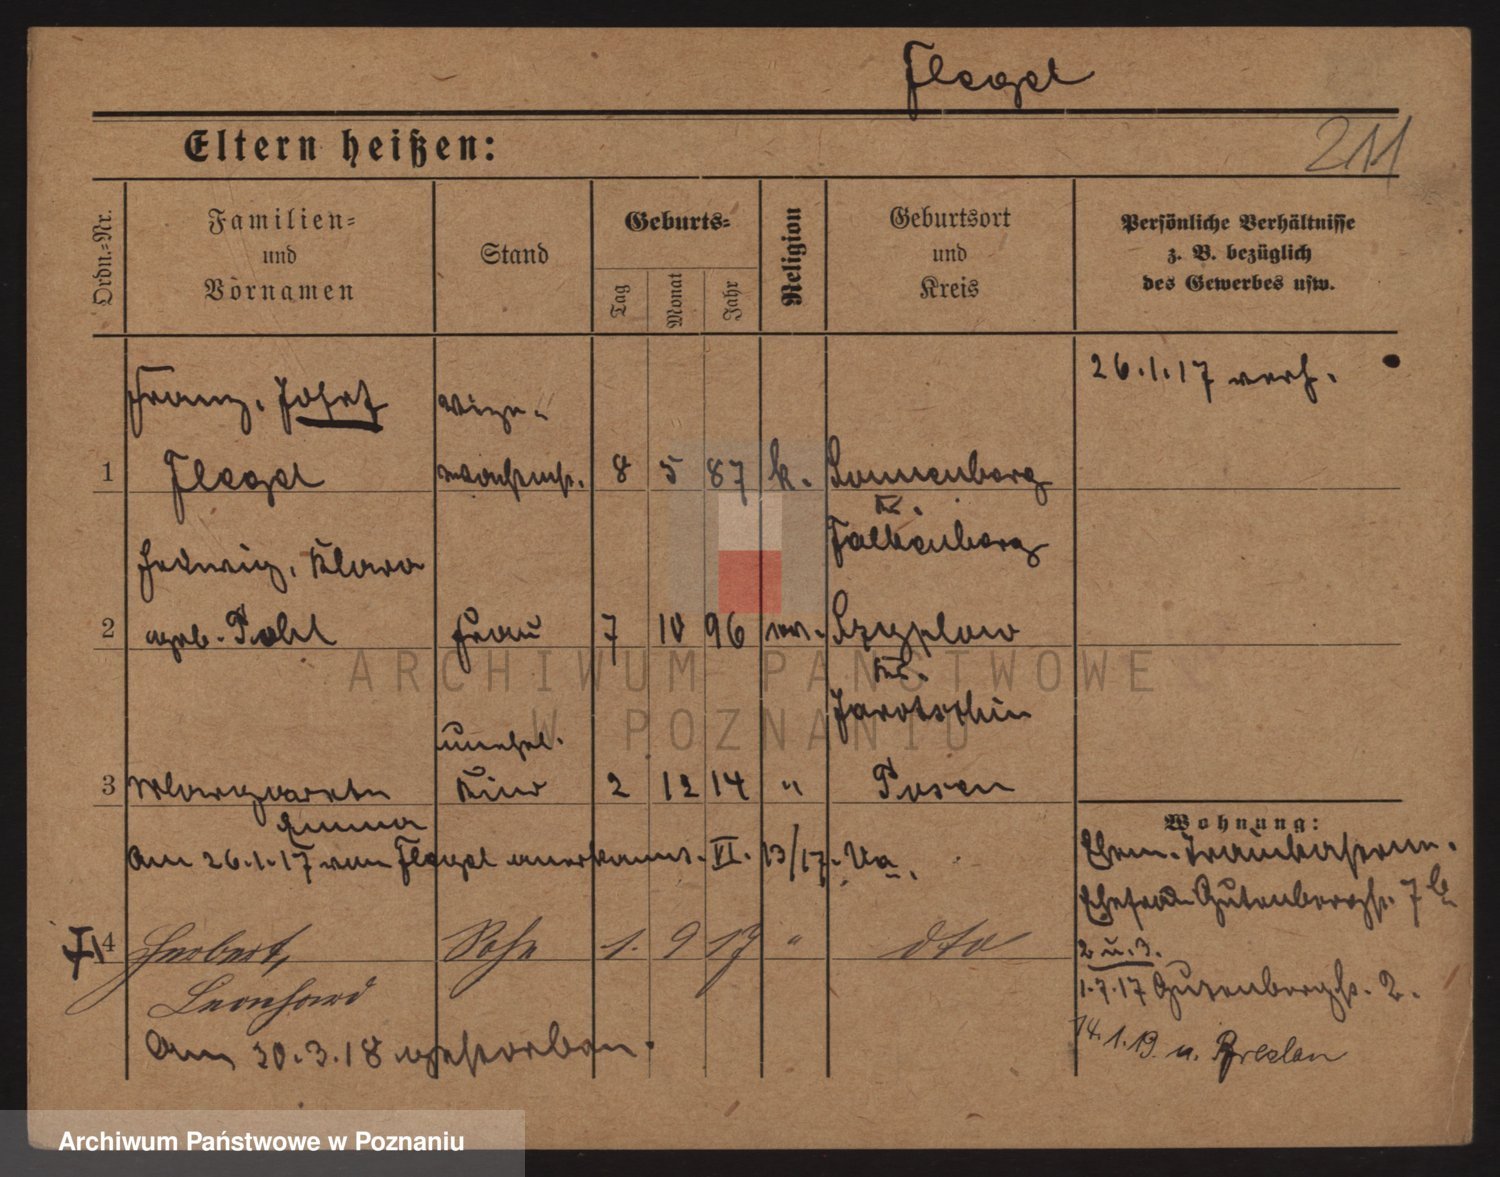 Flegel
Eltern heißen:
211
Ordn.-Nr.
Familien-
und
Vornamen
Stand
Geburts-
Tag
Monat
Jahr
Religion
Geburtsort
und
Kreis
Persönliche Verhältnisse
z. B. bezüglich
des Gewerbes usw.
Franz, Josef
Vize-
26.1.17 verh.
1 Flegel wachtmst. 8 5 87 k. Sonnenberg
Kr.
Falkenberg
Hedwig, Klara
2 geb. Pohl Frau 7 10 96 ev.
Kr.
Jarotschin
unehel.
3 Margarete Kind 2 12 14 " Posen
Emma
Am 26.1.17 vom Flegel anerkannt. VI. 13/17.
Wohnung:
Ehem. Trainkaserne.
Ehefrau Gutenbergstr. 7
4 Herbert, Sohn 1. 9 17 " dto
2 u. 3.
Leonhard
1.7.17 Gutenbergstr. 2.
Am 30.3.18 gestorben.
14.1.19. n. Breslau
ARCHIWUM PAŃSTWOWE
W POZNANIU
Archiwum Państwowe w Poznaniu